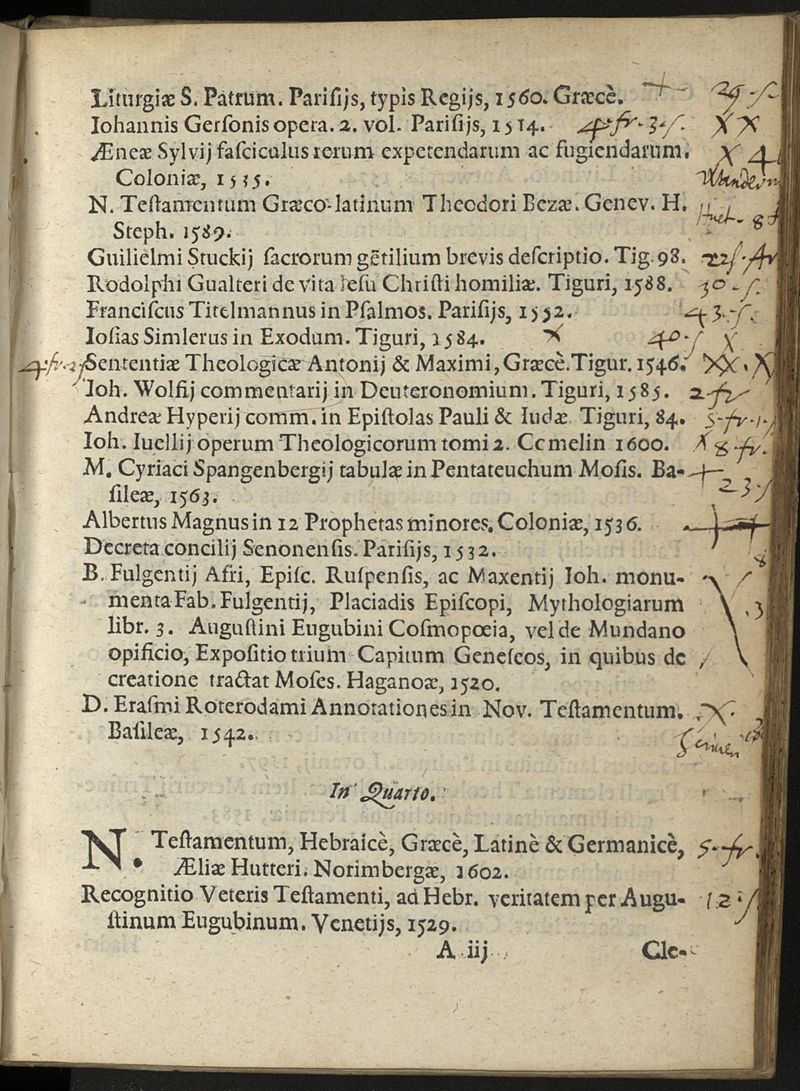 Liturgiæ S. Patrum. Pariſijs, typis Regijs, 1560. Græcè. 29-ſ
Iohannis Gerſonis opera. 2. vol. Pariſijs, 1514. 4-fr-3-ſ. X X
Æneæ Sylvij faſciculus rerum expetendarum ac fugiendarum. X 4
Coloniæ, 1535.
N. Teſtamentum Græco-latinum Theodori Bezæ. Genev. H.
Steph. 1589.
Guilielmi Stuckij ſacrorum gẽtilium brevis deſcriptio. Tig. 98.
Rodolphi Gualteri de vita Ieſu Chriſti homiliæ. Tiguri, 1588. 30-ſ.
Franciſcus Titelmannus in Pſalmos. Pariſijs, 1552. 43-ſ.
Ioſias Simlerus in Exodum. Tiguri, 1584. X 40-ſ X
Sententiæ Theologicæ Antonij & Maximi, Græcè. Tigur. 1546. XX. X
Ioh. Wolfij commentarij in Deuteronomium. Tiguri, 1585. 2-fr
Andreæ Hyperij comm. in Epiſtolas Pauli & Iudæ Tiguri, 84. 5-fr-1-ſ
Ioh. Iuellij operum Theologicorum tomi 2. Comelin 1600. X 8-fr.
M. Cyriaci Spangenbergij tabulæ in Pentateuchum Moſis. Ba-
ſileæ, 1563. 23-ſ
Albertus Magnus in 12 Prophetas minores. Coloniæ, 1536.
Decreta concilij Senonenſis. Pariſijs, 1532.
B. Fulgentij Afri, Epiſc. Ruſpenſis, ac Maxentij Ioh. monu-
menta Fab. Fulgentij, Placiadis Epiſcopi, Mythologiarum
libr. 3. Auguſtini Eugubini Coſmopœia, vel de Mundano
opificio, Expoſitio trium Capitum Geneſeos, in quibus de
creatione tractat Moſes. Haganoæ, 1520.
D. Eraſmi Roterodami Annotationes in Nov. Teſtamentum. X.
Baſileæ, 1542.
In Quarto.
N. Teſtamentum, Hebraicè, Græcè, Latinè & Germanicè, 5-fr.
Æliæ Hutteri. Norimbergæ, 1602.
Recognitio Veteris Teſtamenti, ad Hebr. veritatem per Augu- 12-ſ
ſtinum Eugubinum. Venetijs, 1529.
A iij Cle-